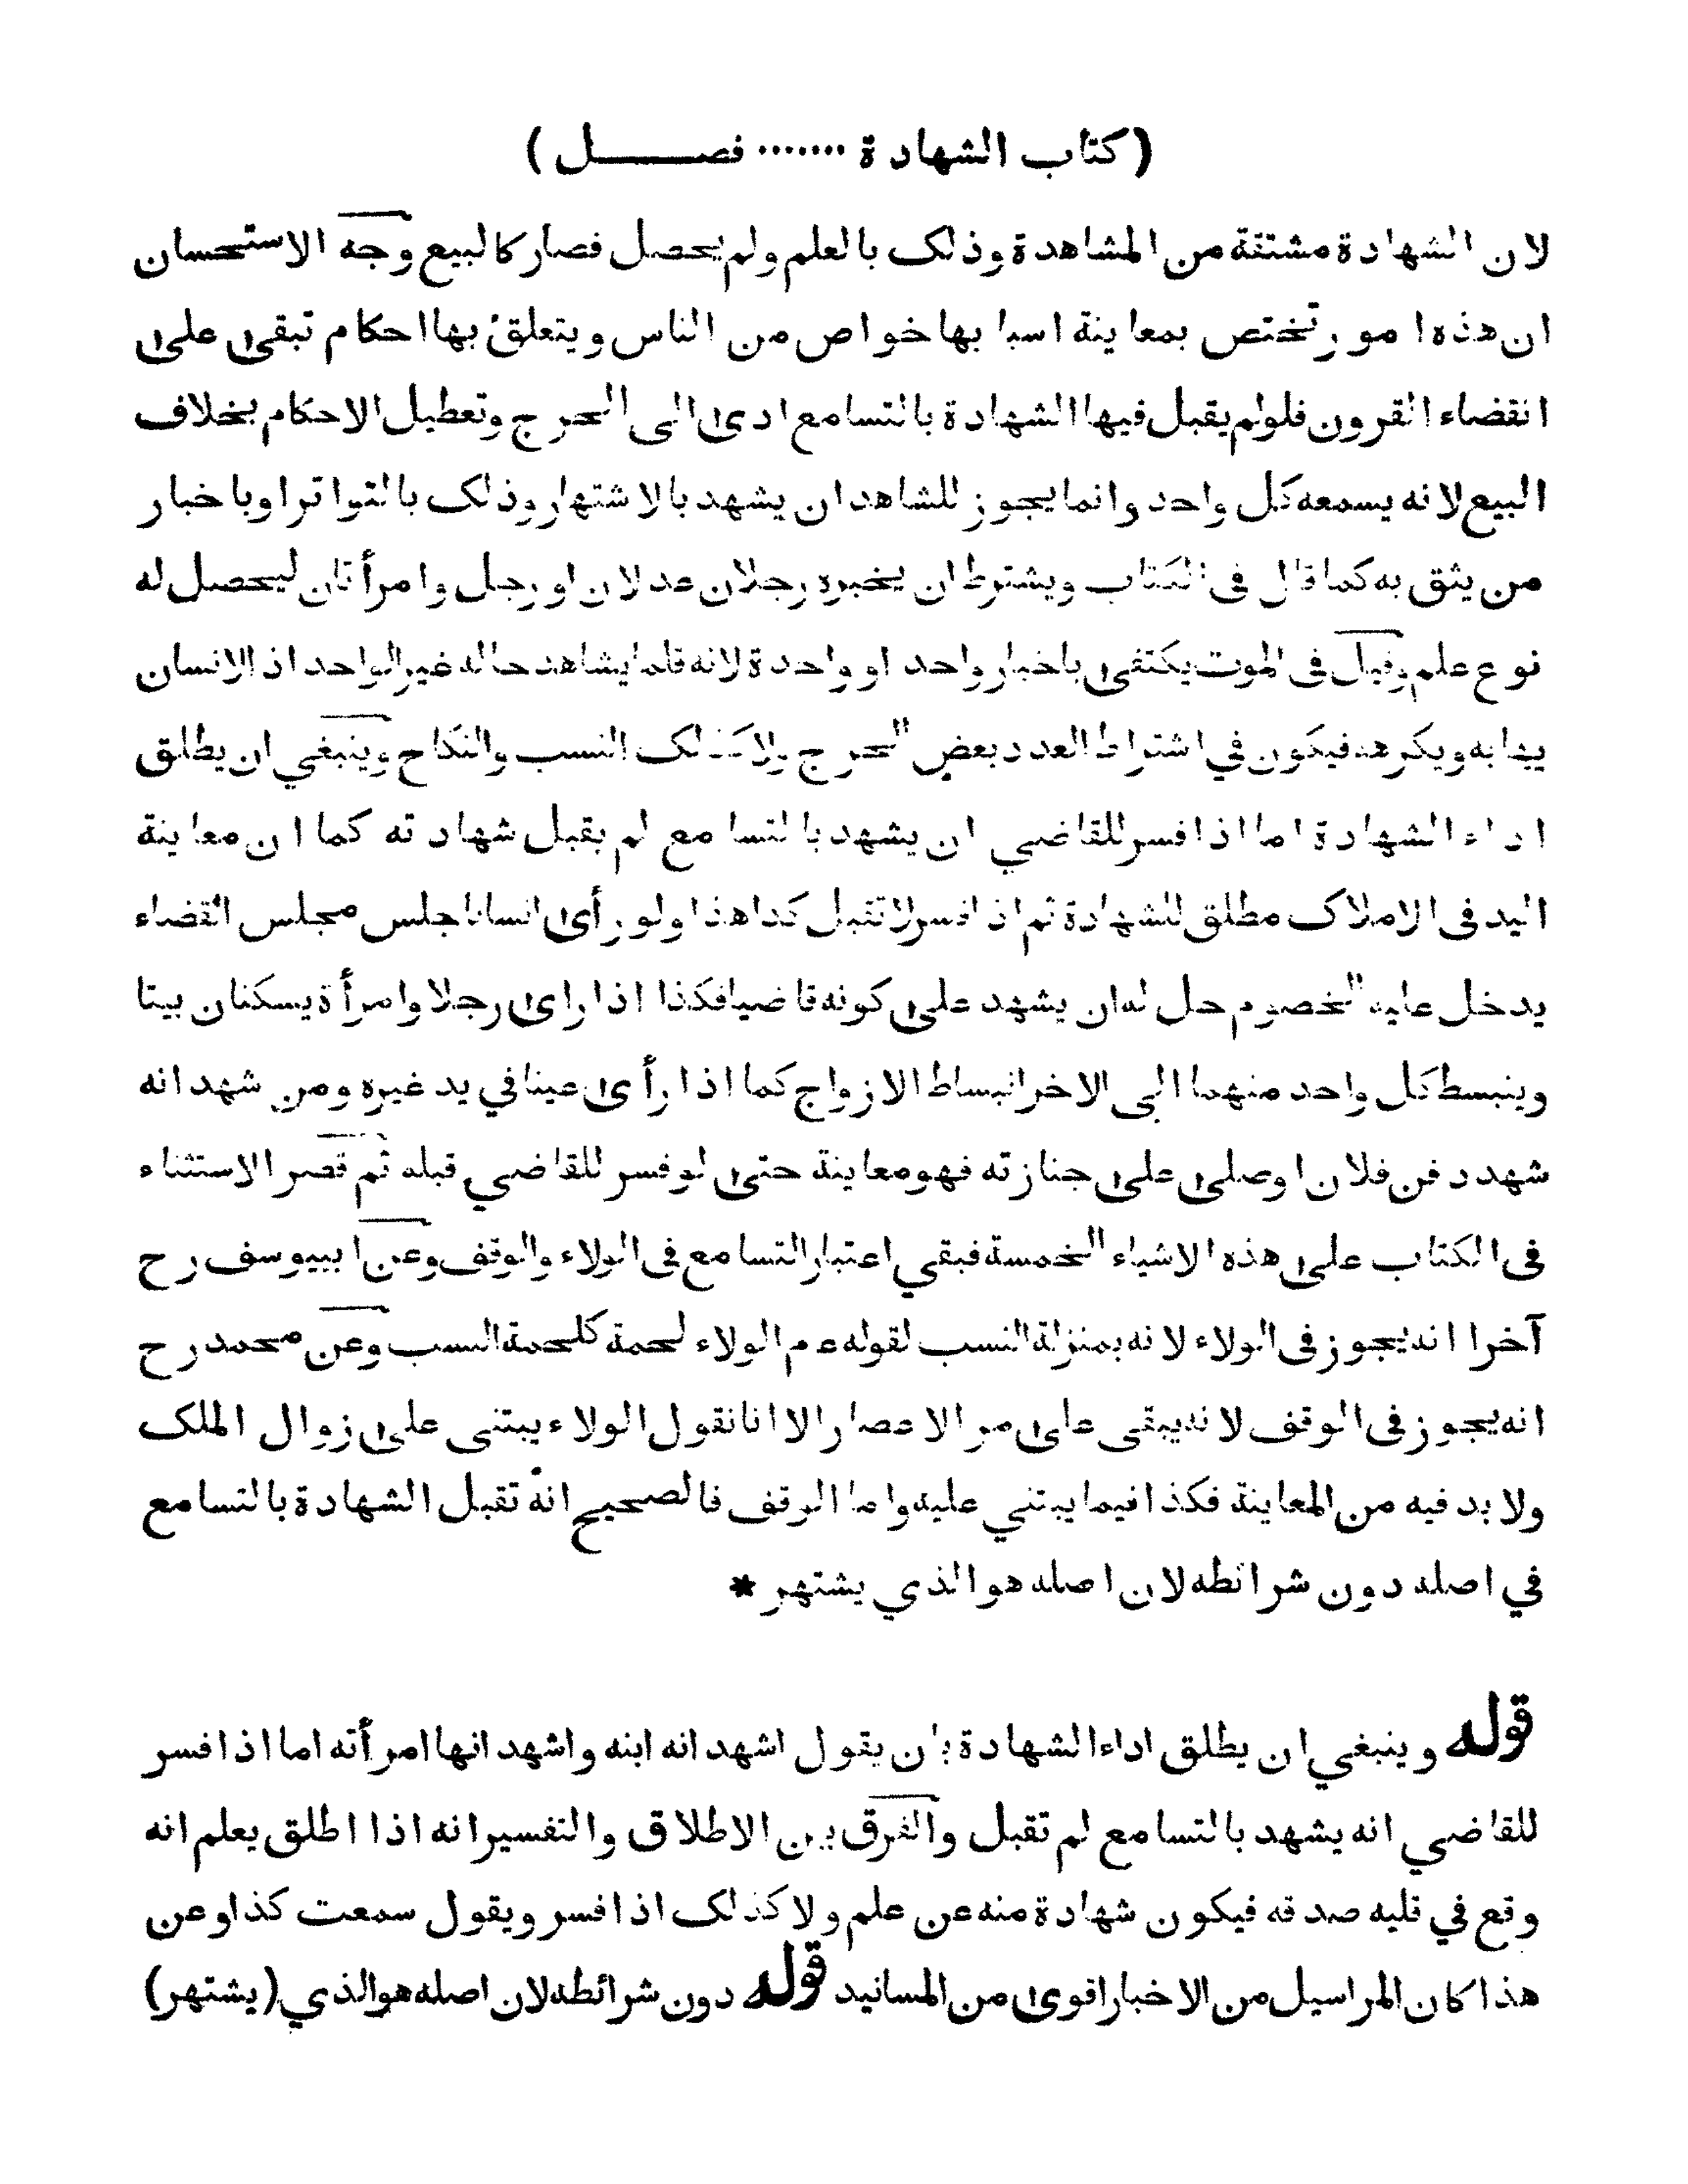 (كتاب الشهادة ....... فصــــل)
لان الشهادة مشتقة من المشاهدة وذلك بالعلم ولم يحصل فصار كالبيع وجه الاستحسان
ان هذه امور تختص بمعاينة اسبابها خواص من الناس ويتعلق بها احكام تبقى على
انقضاء القرون فلولم يقبل فيها الشهادة بالتسامع ادى الى الحرج وتعطيل الاحكام بخلاف
البيع لانه يسمعه كل واحد وانما يجوز للشاهد ان يشهد بالاشتهار وذلك بالتواتر او باخبار
من يثق به كما قال فى الكتاب ويشترط ان يخبره رجلان عدلان او رجل وامرأتان ليحصل له
نوع علم وقيل فى الموت يكتفى باخبار واحد او واحدة لانه قلما يشاهد حاله غير الواحد اذ الانسان
يهابه ويكرهه فيكون في اشتراط العدد بعض الحرج ولا كذلك النسب والنكاح وينبغي ان يطلق
اداء الشهادة اما اذا فسر للقاضي ان يشهد بالتسامع لم يقبل شهادته كما ان معاينة
اليد فى الاملاك مطلق للشهادة ثم اذا فسر لا تقبل كذا هذا ولو رأى انسانا جلس مجلس القضاء
يدخل عليه الخصوم حل له ان يشهد على كونه قاضيا فكذا اذا راى رجلا وامرأة يسكنان بيتا
وينبسط كل واحد منهما الى الاخر انبساط الازواج كما اذا رأى عينا في يد غيره ومن شهد انه
شهد دفن فلان او صلى على جنازته فهو معاينة حتى لو فسر للقاضي قبله ثم قصر الاستثناء
فى الكتاب على هذه الاشياء الخمسة فبقي اعتبار التسامع فى الولاء والوقف وعن ابييوسف رح
آخرا انه يجوز فى الولاء لانه بمنزلة النسب لقوله عم الولاء لحمة كلحمة النسب وعن محمد رح
انه يجوز فى الوقف لانه يبقى على مر الاعصار الا انا نقول الولاء يبتنى على زوال الملك
ولا بد فيه من المعاينة فكذا فيما يبتني عليه واما الوقف فالصحيح انه تقبل الشهادة بالتسامع
في اصله دون شرائطه لان اصله هو الذي يشتهر *
قوله وينبغي ان يطلق اداء الشهادة بان يقول اشهد انه ابنه واشهد انها امرأته اما اذا فسر
للقاضي انه يشهد بالتسامع لم تقبل والفرق بين الاطلاق والتفسير انه اذا اطلق يعلم انه
وقع في قلبه صدقه فيكون شهادة منه عن علم ولا كذلك اذا فسر ويقول سمعت كذا وعن
هذا كان المراسيل من الاخبار اقوى من المسانيد قوله دون شرائطه لان اصله هو الذي (يشتهر)